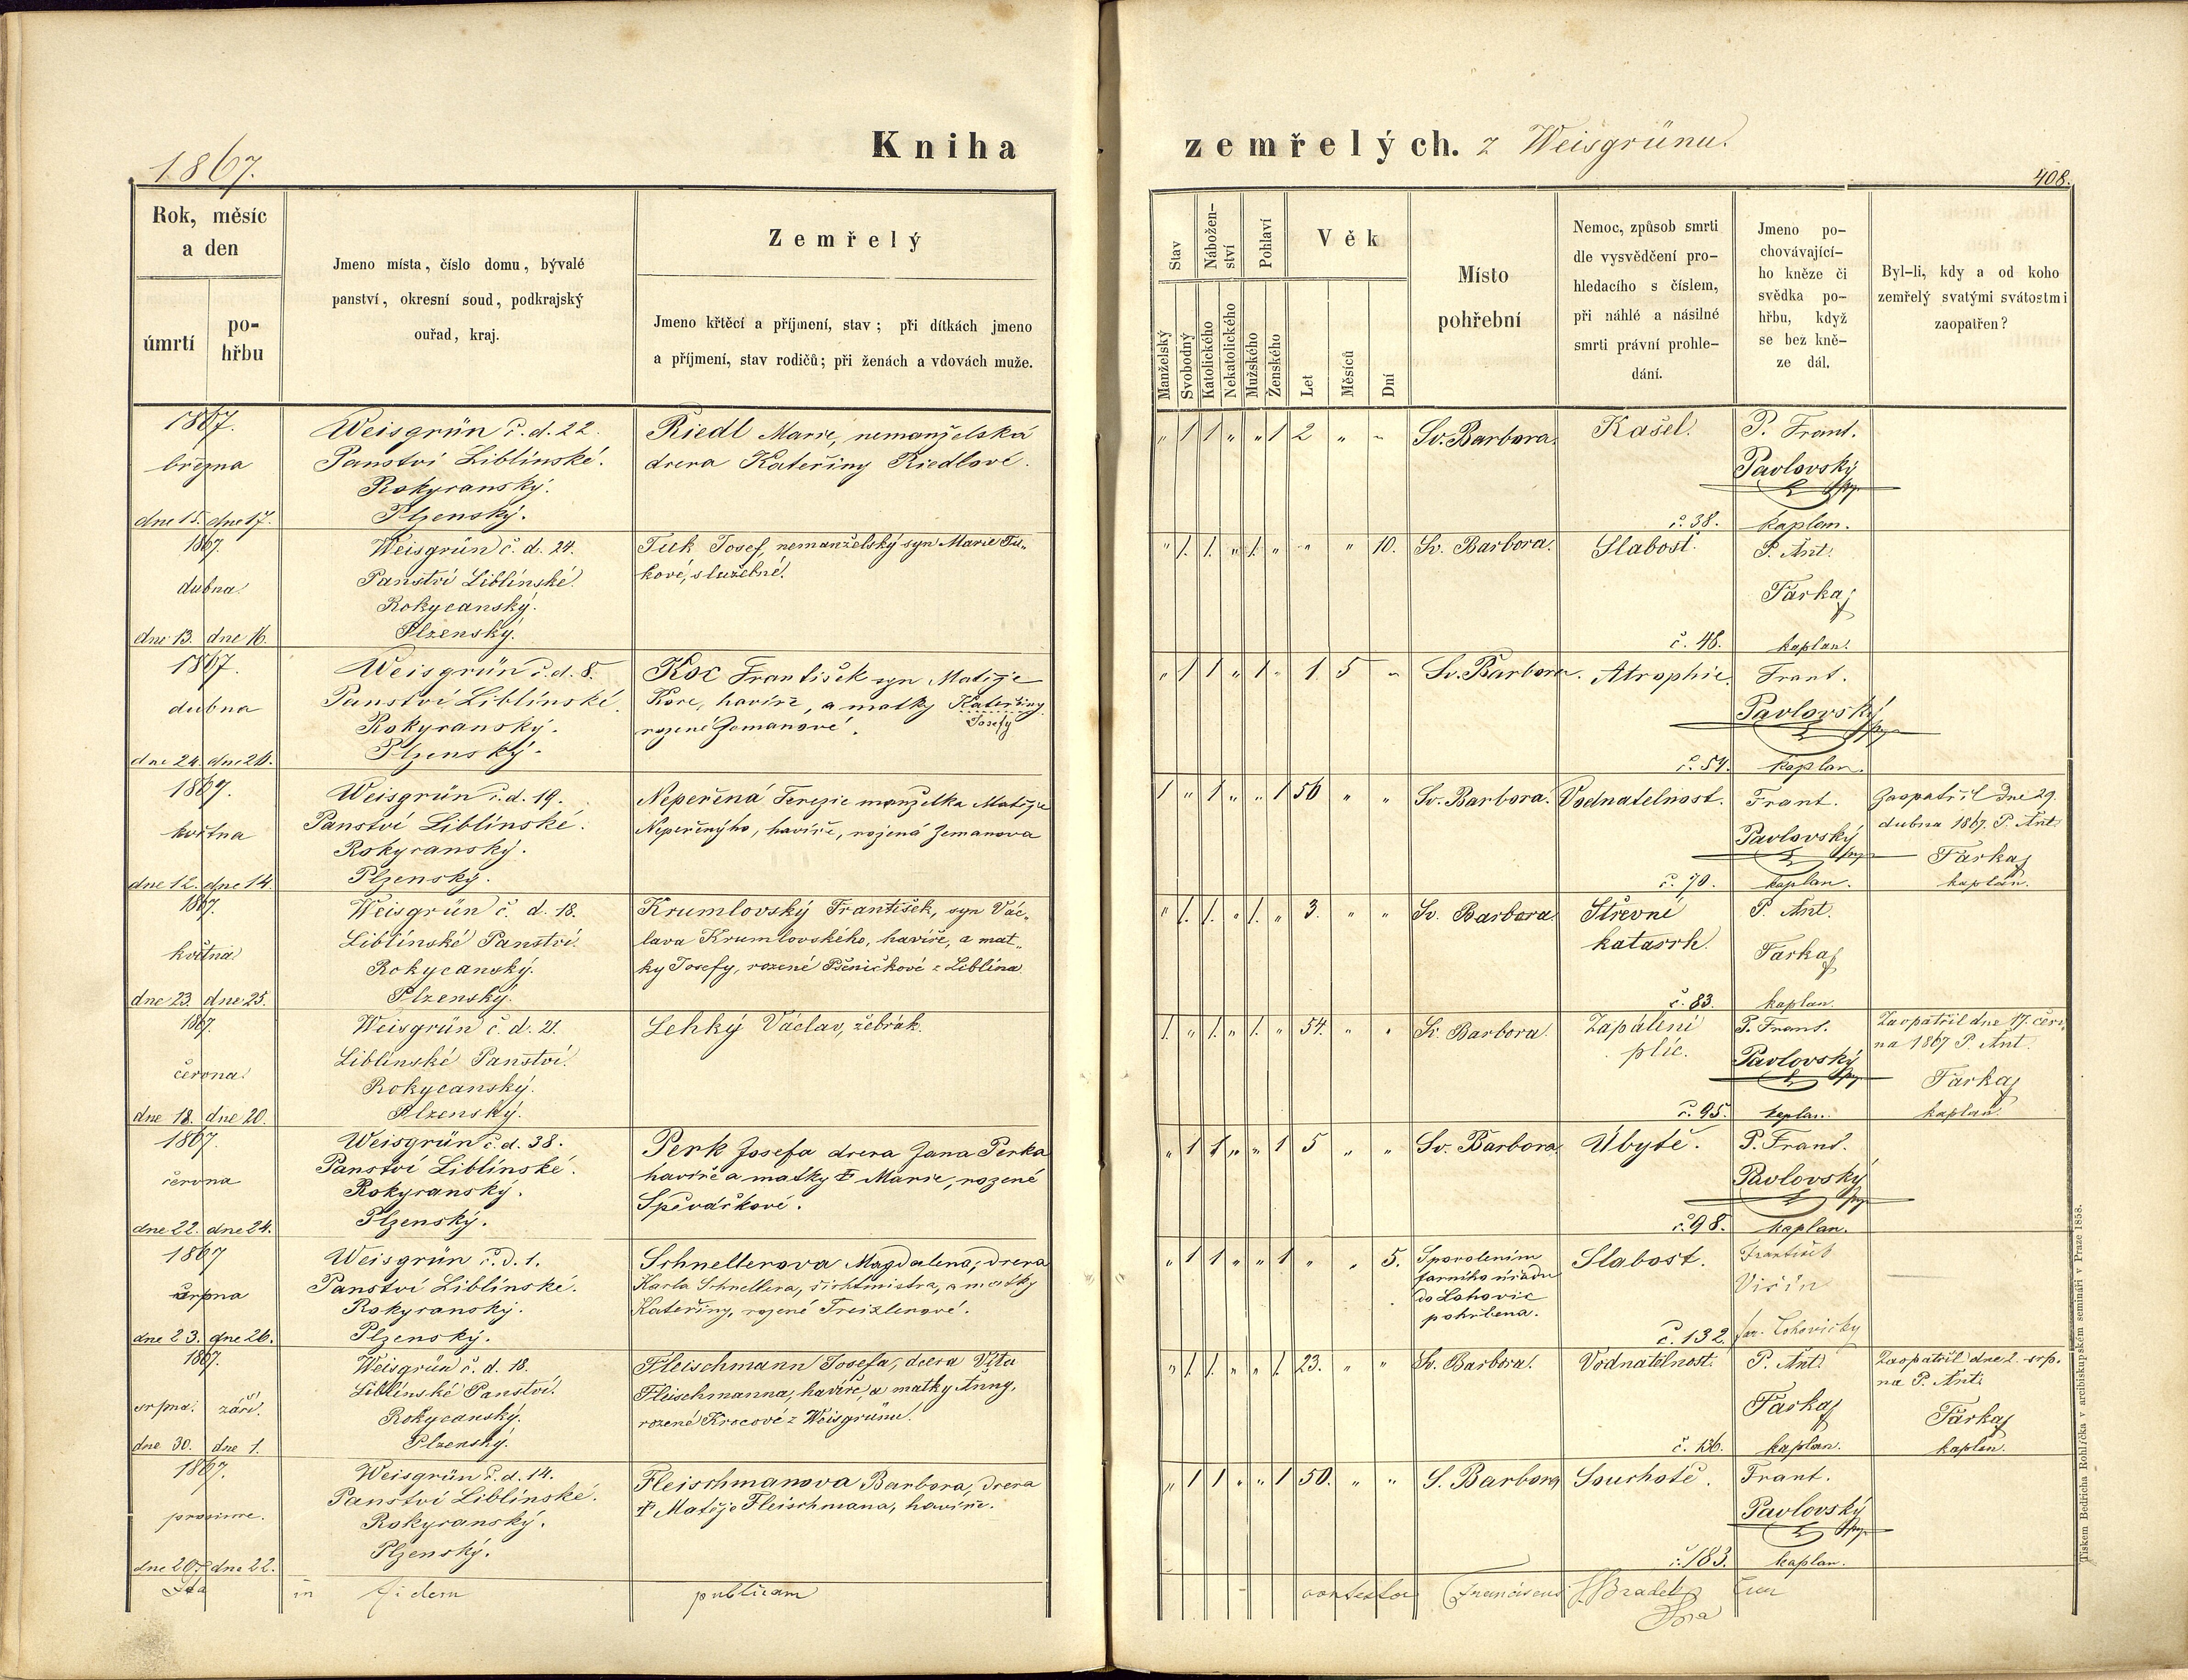 Kniha zemřelých. z Weisgrünu.
1867.
408.
Rok, měsíc
a den
úmrtí
po-
hřbu
Jmeno místa, číslo domu, bývalé
panství, okresní soud, podkrajský
ouřad, kraj.
Zemřelý
Jmeno křtěcí a příjmení, stav; při dítkách jmeno
a příjmení, stav rodičů; při ženách a vdovách muže.
Stav
Manželský
Svobodný
Nábožen-
ství
Katolického
Nekatolického
Pohlaví
Mužského
Ženského
Věk
Let
Měsíců
Dní
Místo
pohřební
Nemoc, způsob smrti
dle vysvědčení pro-
hledacího s číslem,
při náhlé a násilné
smrti právní prohle-
dání.
Jmeno po-
chovávající-
ho kněze či
svědka po-
hřbu, když
se bez kně-
ze dál.
Byl-li, kdy a od koho
zemřelý svatými svátostmi
zaopatřen?
1867.
března
dne 15. dne 17.
Weisgrün č. d. 22.
Panství Liblínské.
Rokycanský.
Plzenský.
Riedl Marie, nemanželská
dcera Kateřiny Riedlové.
" 1 1 " " 1 2 " "
Sv. Barbora.
Kašel.
č. 38.
P. Frant.
Pavlovský
kaplan.
1867.
dubna.
dne 13. dne 16.
Weisgrün č. d. 24.
Panství Liblínské.
Rokycanský.
Plzenský.
Tuk Josef, nemanželský syn Marie Tu-
kové, služebné.
" 1. 1. " 1. " " " 10.
Sv. Barbora.
Slabost.
č. 48.
P. Ant.
Farkaj
kaplan.
1867.
dubna
dne 24. dne 26.
Weisgrün č. d. 8.
Panství Liblínské.
Rokycanský.
Plzenský.
Koc František syn Matěje
Koce, havíře, a matky Kateřiny
Josefy
rozené Zemanové.
" 1 1 " 1 " 1 5 "
Sv. Barbora.
Atrophie.
č. 54.
Frant.
Pavlovský
kaplan.
1867.
května
dne 12. dne 14.
Weisgrün č. d. 19.
Panství Liblínské.
Rokycanský.
Plzenský.
Nepeřená Terezie manželka Matěje
Nepeřenýho, havíře, rozená Zemanova
1 " 1 " " 1 56 " "
Sv. Barbora.
Vodnatelnost.
č. 70.
Frant.
Pavlovský
kaplan.
Zaopatřil dne 29.
dubna 1867. P. Ant.
Farkaj
kaplan.
1867.
května
dne 23. dne 25.
Weisgrün č. d. 18.
Liblínské Panství.
Rokycanský.
Plzenský.
Krumlovský František, syn Vác-
lava Krumlovského, havíře, a mat-
ky Josefy, rozené Pšeničkové z Liblína
" 1. 1. " 1. " 3. " "
Sv. Barbora
Střevní
katarrh.
č. 83.
P. Ant.
Farkaj
kaplan.
1867.
června.
dne 18. dne 20.
Weisgrün č. d. 21.
Liblínské Panství.
Rokycanský.
Plzenský.
Lehký Václav, žebrák.
1. " 1. " 1. " 54. " "
Sv. Barbora.
Zapálení
plic.
č. 95.
P. Frant.
Pavlovský
kaplan.
Zaopatřil dne 17. červ-
na 1867 P. Ant.
Farkaj
kaplan.
1867.
června
dne 22. dne 24.
Weisgrün č. d. 38.
Panství Liblínské.
Rokycanský.
Plzenský.
Perk Josefa dcera Jana Perka
havíře a matky † Marie, rozené
Spěváčkové.
" 1 1 " " 1 5 " "
Sv. Barbora
Úbytě.
č. 98.
P. Frant.
Pavlovský
kaplan.
1867
srpna
dne 23. dne 26.
Weisgrün č. d. 1.
Panství Liblínské.
Rokycanský.
Plzenský.
Schnellerova Magdalena, dcera
Karla Schnellera, šichtmistra, a matky
Kateřiny, rozené Treizlerové.
" 1 1 " " 1 " " 5.
S povolením
farního úřadu
do Lohovic
pohřbena.
Slabost.
č. 132.
František
Vičín
far. Lohovický
1867.
srpna. září.
dne 30. dne 1.
Weisgrün č. d. 18.
Liblínské Panství.
Rokycanský.
Plzenský.
Fleischmann Josefa, dcera Víta
Fleischmanna, havíře, a matky Anny,
rozené Krocové z Weisgrünu.
" 1. 1. " " 1. 23. " "
Sv. Barbora.
Vodnatelnost.
č. 136.
P. Ant.
Farkaj
kaplan.
Zaopatřil dne 2. srp-
na P. Ant.
Farkaj
kaplan.
1867.
prosince.
dne 20. dne 22.
Weisgrün č. d. 14.
Panství Liblínské.
Rokycanský.
Plzenský.
Fleischmanova Barbora, dcera
† Matěje Fleischmana, havíře.
" 1 1 " " 1 50. " "
S. Barbora
Souchotě.
č. 183.
Frant.
Pavlovský
kaplan.
Ita in fidem publicam contestor Franciscus Bradel
Tiskem Bedřicha Rohlíčka v arcibiskupském semináři v Praze 1858.